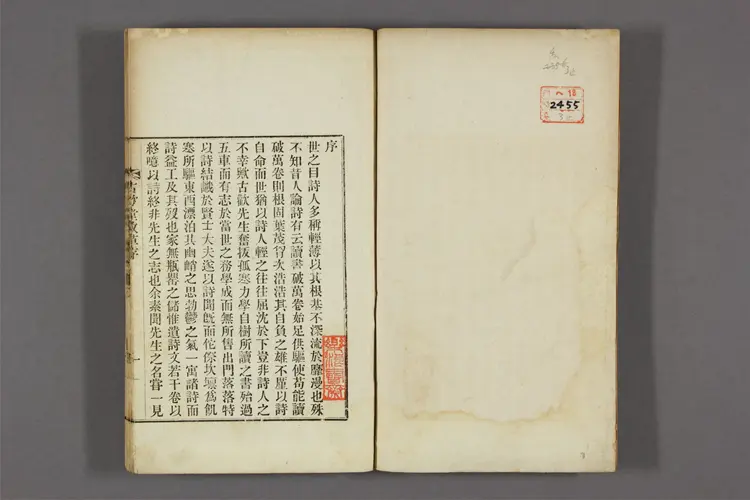 序
世之目詩人多稱輕薄以其根基不深流於靡漫也殊
不知昔人論詩有云讀書破萬卷始足供驅使苟能讀
破萬卷則根固葉茂胷次浩浩其自負之雄不厪以詩
自命而世猶以詩人輕之往往屈沈於下豈非詩人之
不幸歟古歡先生奮拔孤寒力學自樹所讀之書殆過
五車而有志於當世之務學成而無所售出門落落特
以詩結識於賢士大夫遂以詩聞旣而佗傺坎壈爲飢
寒所驅東西漂泊其幽崤之思勃鬱之氣一寓諸詩而
詩益工及其歿也家無瓶罌之儲惟遺詩文若干卷以
終噫以詩終非先生之志也余素聞先生之名嘗一見
序
一
2455